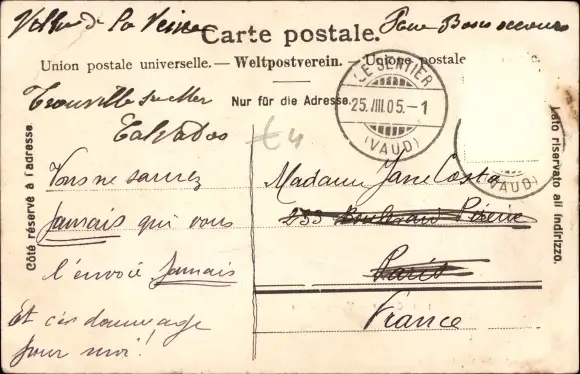 Villa de la Reine
Carte postale.
Union postale universelle. — Weltpostverein. — Unione postale
Nur für die Adresse.
Trouville sur Mer
Calvados
LE SENTIER
25. III 05. - 1
(VAUD)
(VAUD)
€4
Côté réservé à l'adresse.
Lato riservato all indirizzo.
Vous ne saurez
Jamais qui vous
l'envoie Jamais
Et c'est dommage
pour moi!
Madame Jane Costa
233 Boulevard Péreire
Paris
France